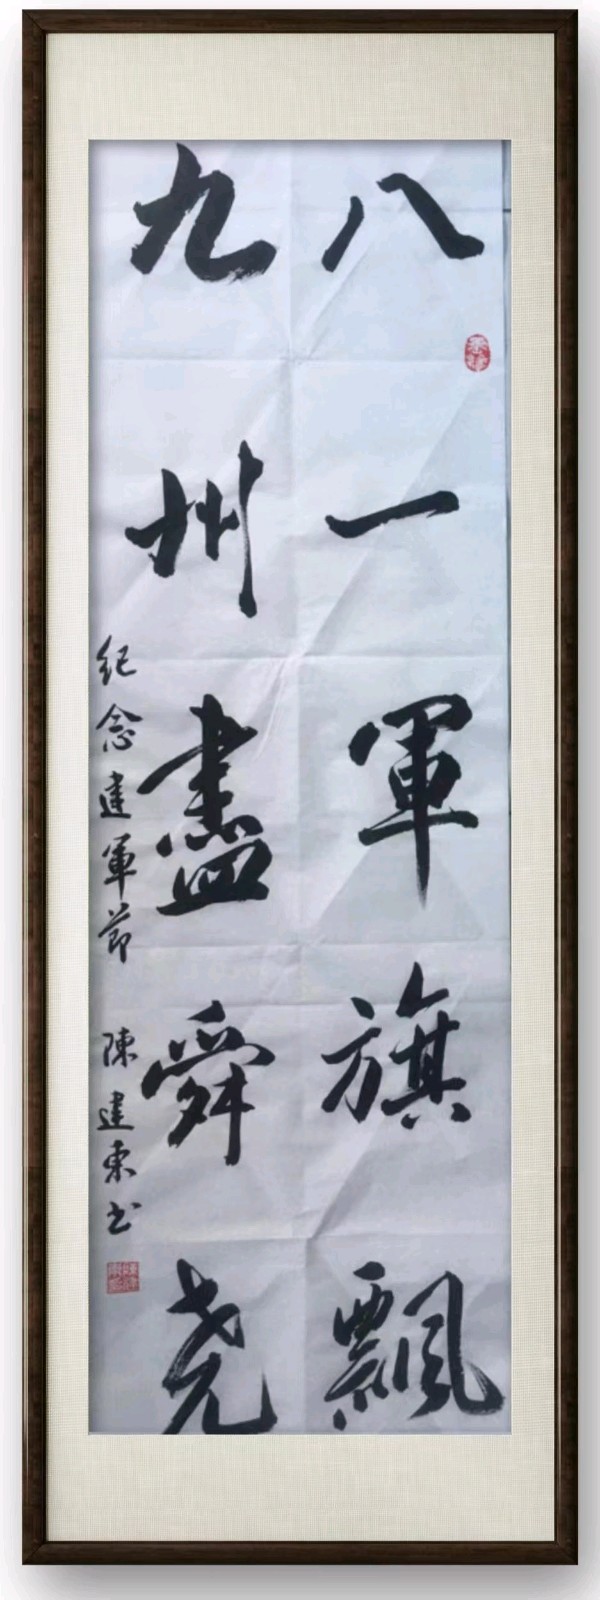 八一軍旗飄
九州盡舜尧
纪念建軍節 陳建東书